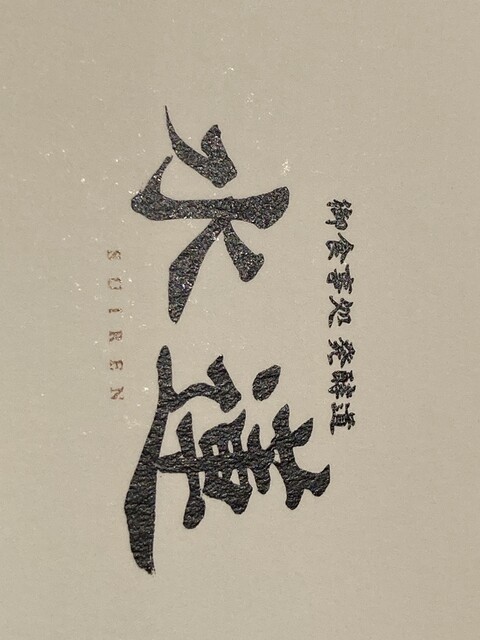 御食事処 発酵道
水蓮
SUIREN